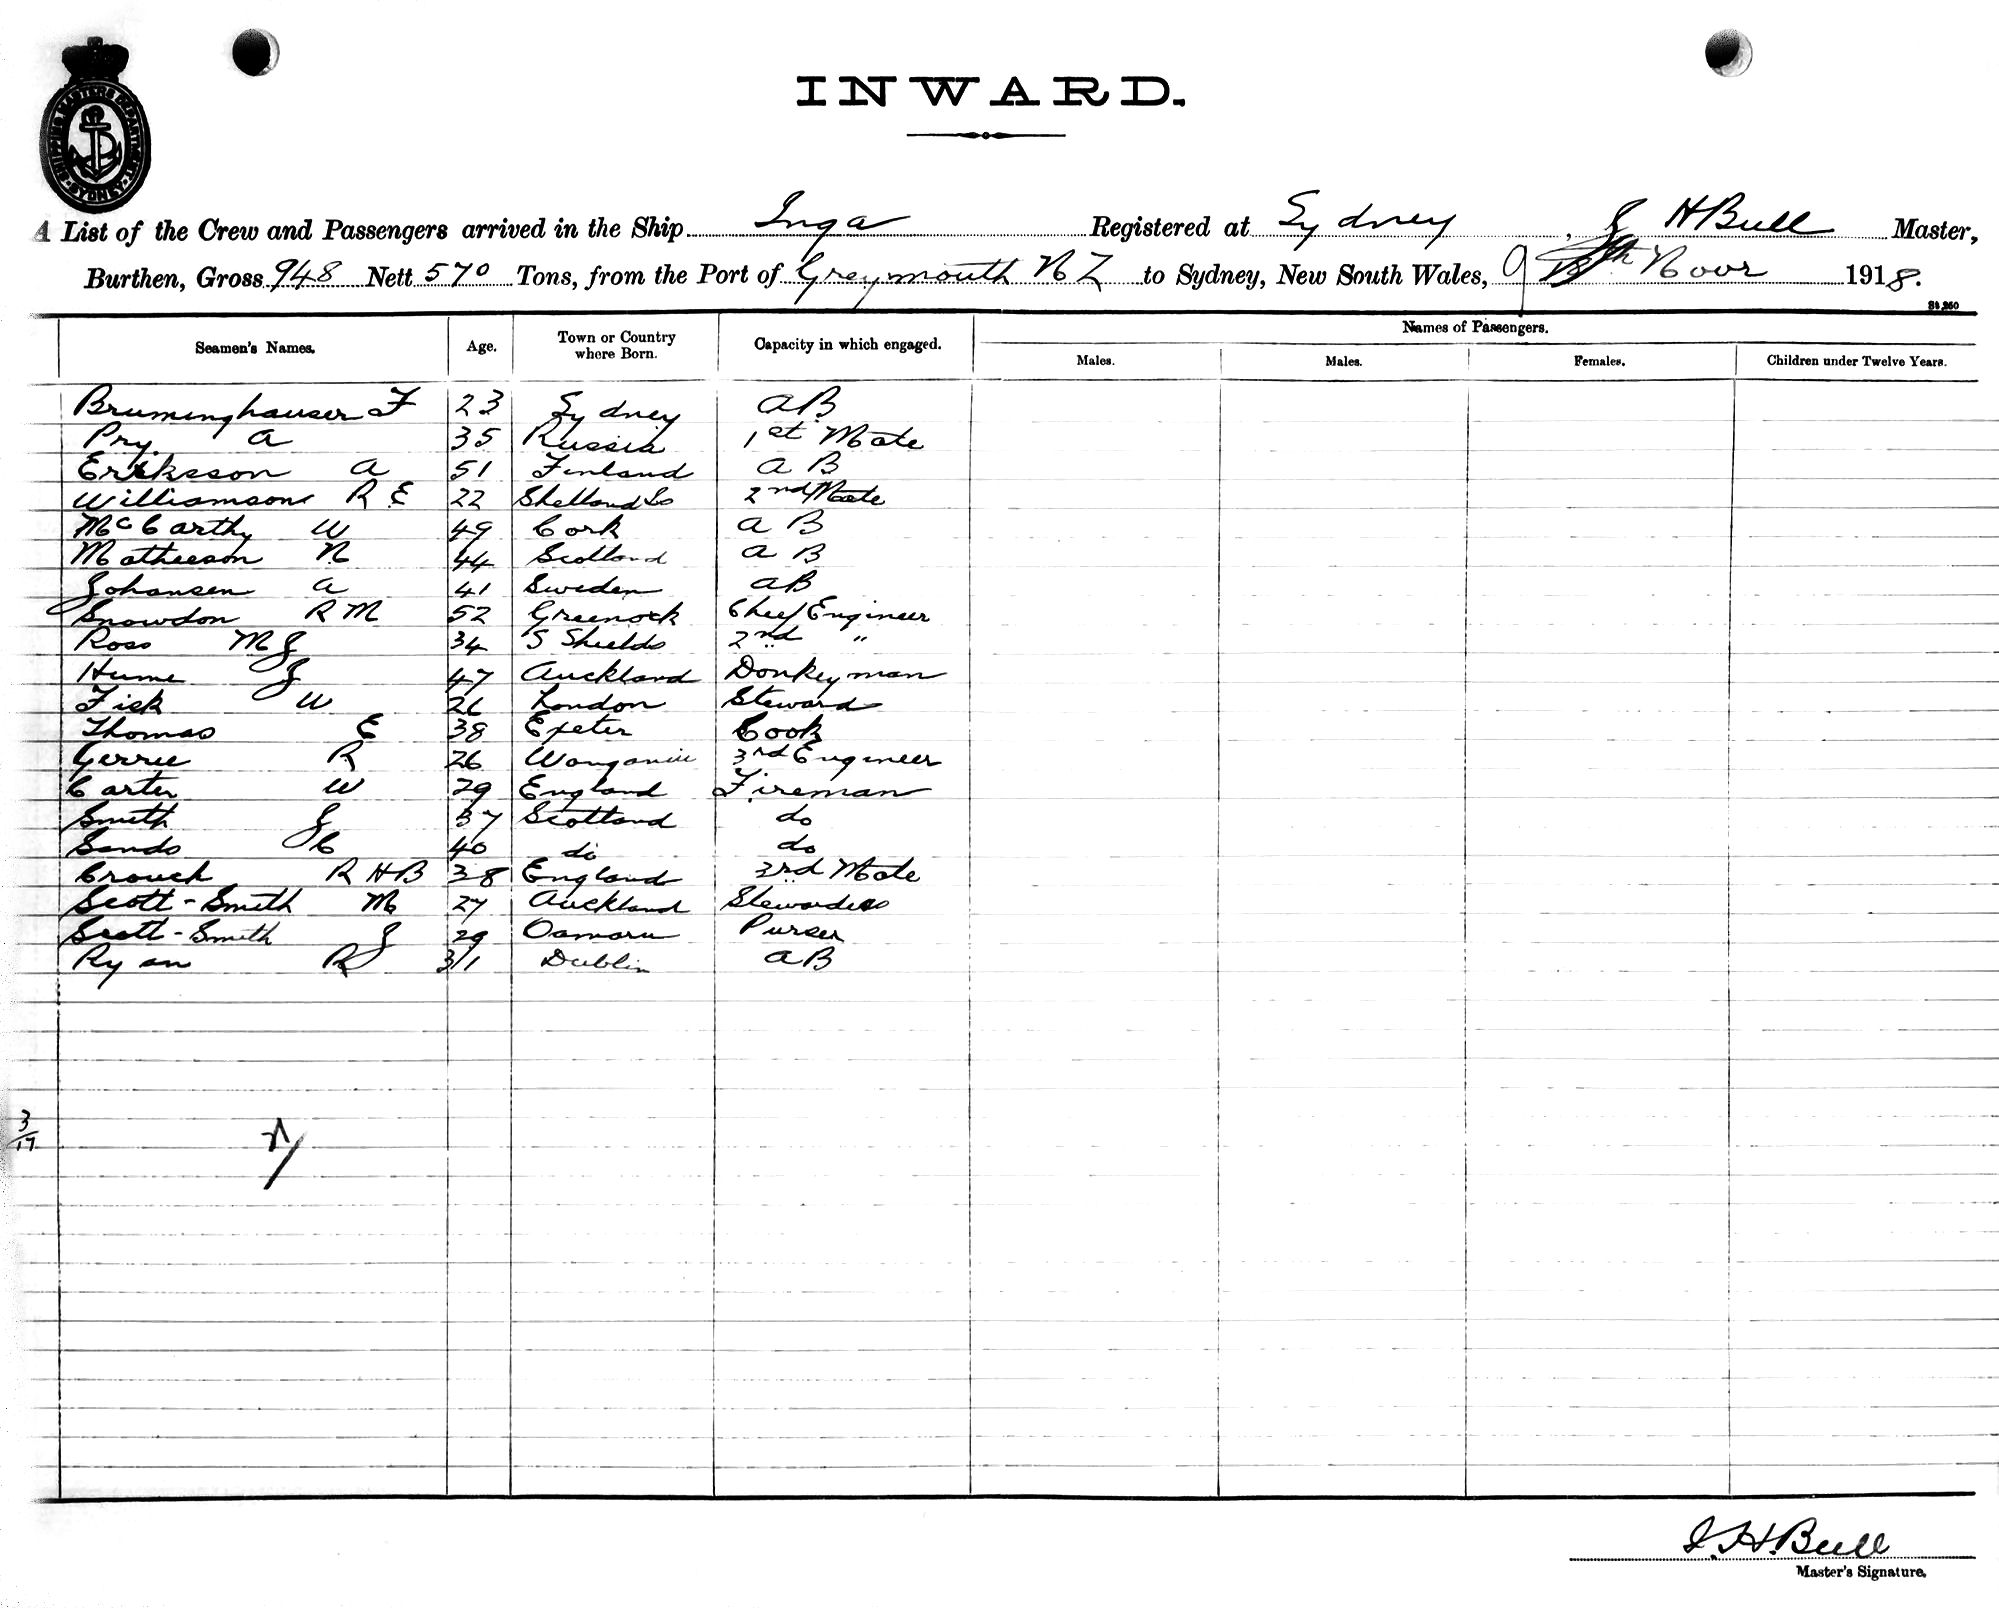 SHIPPING MASTERS DEPARTMENT SYDNEY
INWARD.
A List of the Crew and Passengers arrived in the Ship Inga Registered at Sydney, J H Bull Master,
Burthen, Gross 948 Nett 570 Tons, from the Port of Greymouth N Z to Sydney, New South Wales, 9 Novr 1918.
Names of Passengers.
Seamen's Names. Age. Town or Country where Born. Capacity in which engaged. Males. Males. Females. Children under Twelve Years.
Bruminghauser F 23 Sydney AB
Pry A 35 Russia 1st Mate
Eriksson A 51 Finland A B
Williamson R E 22 Shetland Is 2nd Mate
McCarthy W 49 Cork A B
Matheeson N 44 Scotland A B
Johansen A 41 Sweden AB
Snowdon R M 52 Greenock Chief Engineer
Ross M J 34 S Shields 2nd "
Hume J 47 Auckland Donkeyman
Fisk W 26 London Steward
Thomas E 38 Exeter Cook
Gerrie R 26 Wanganui 3rd Engineer
Carter W 29 England Fireman
Smith J 37 Scotland do
Sands J C 40 do do
Crouch R H B 38 England 3rd Mate
Scott-Smith M 27 Auckland Stewardess
Scott-Smith J 29 Oamaru Purser
Ryan R 31 Dublin AB
3/17
J. H. Bull
Master's Signature.